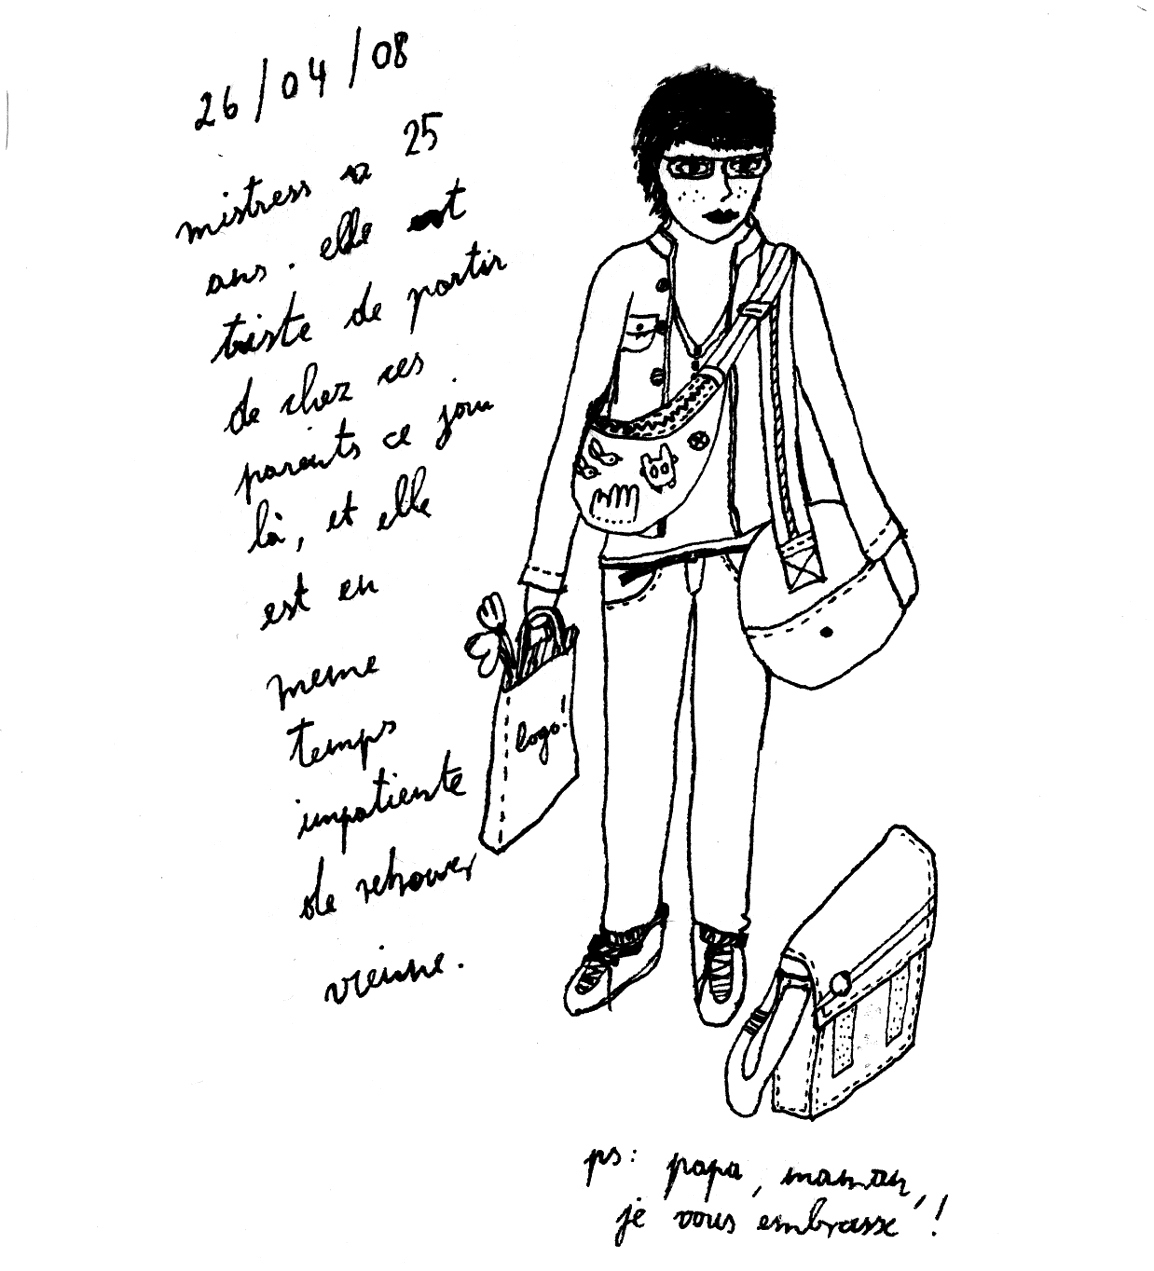 26/04/08
mistress a 25
ans. elle est
triste de partir
de chez ces
parents ce jour
là, et elle
est en
meme
temps
impatiente
de retrouver
vienne.
logo!
ps: papa, maman,
je vous embrasse !